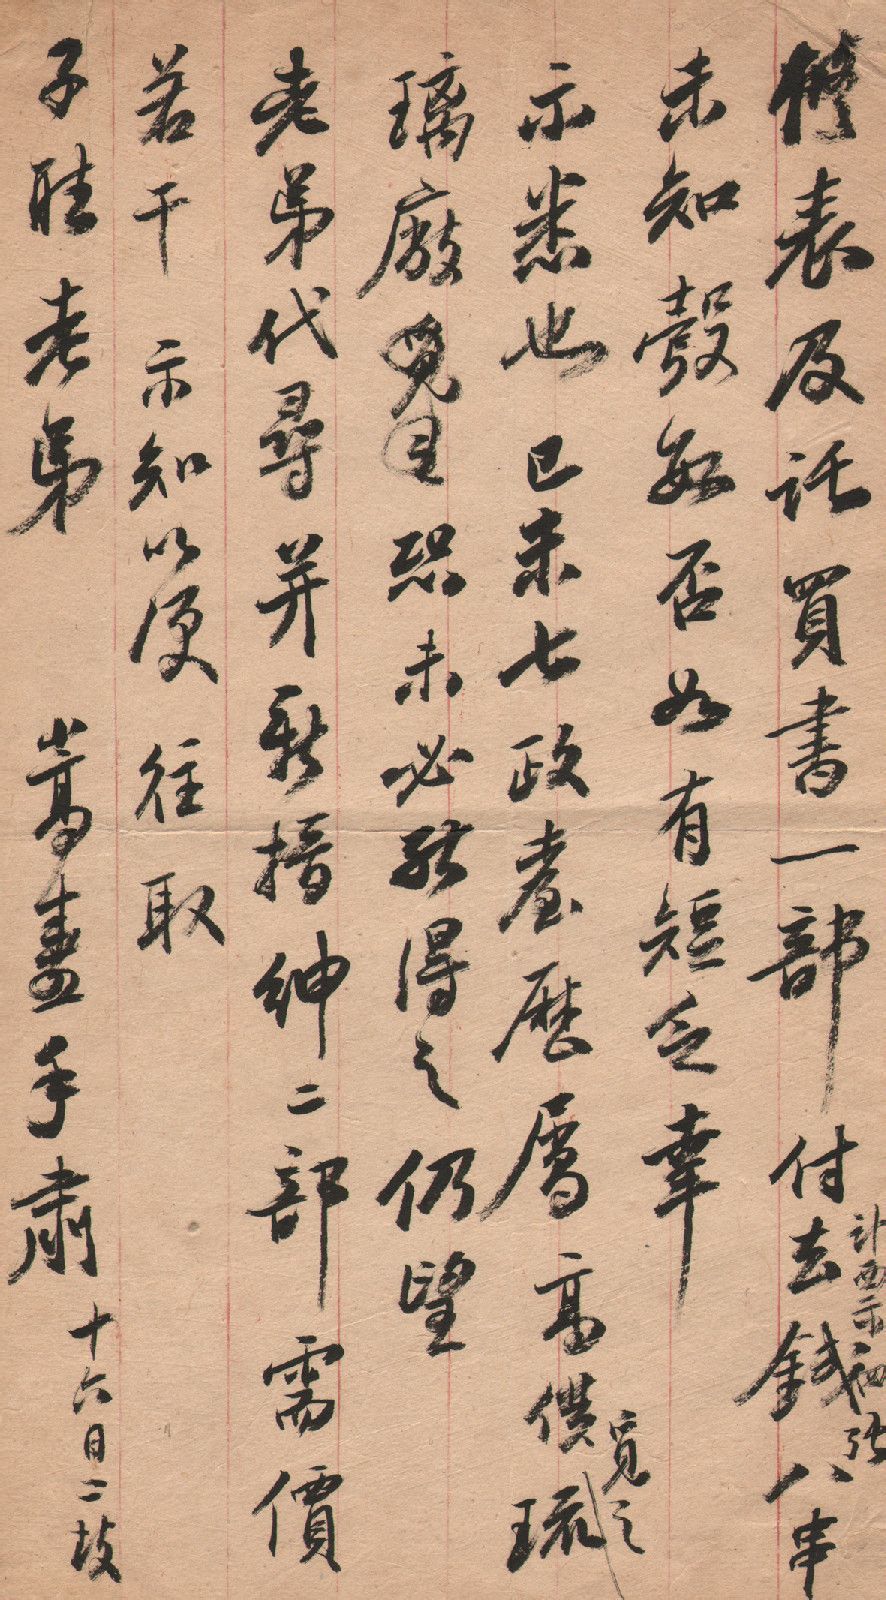 修表及託買書一部付去錢八串
計四示
未知彀数否如有短乏幸
示悉也己未七政臺歷屬高供琉
覓之
璃廠覓恐未必能得之仍望
老弟代尋并新搢紳二部需價
若干示知以便往取
子
老弟
嵩燾手肅
十六日二鼓